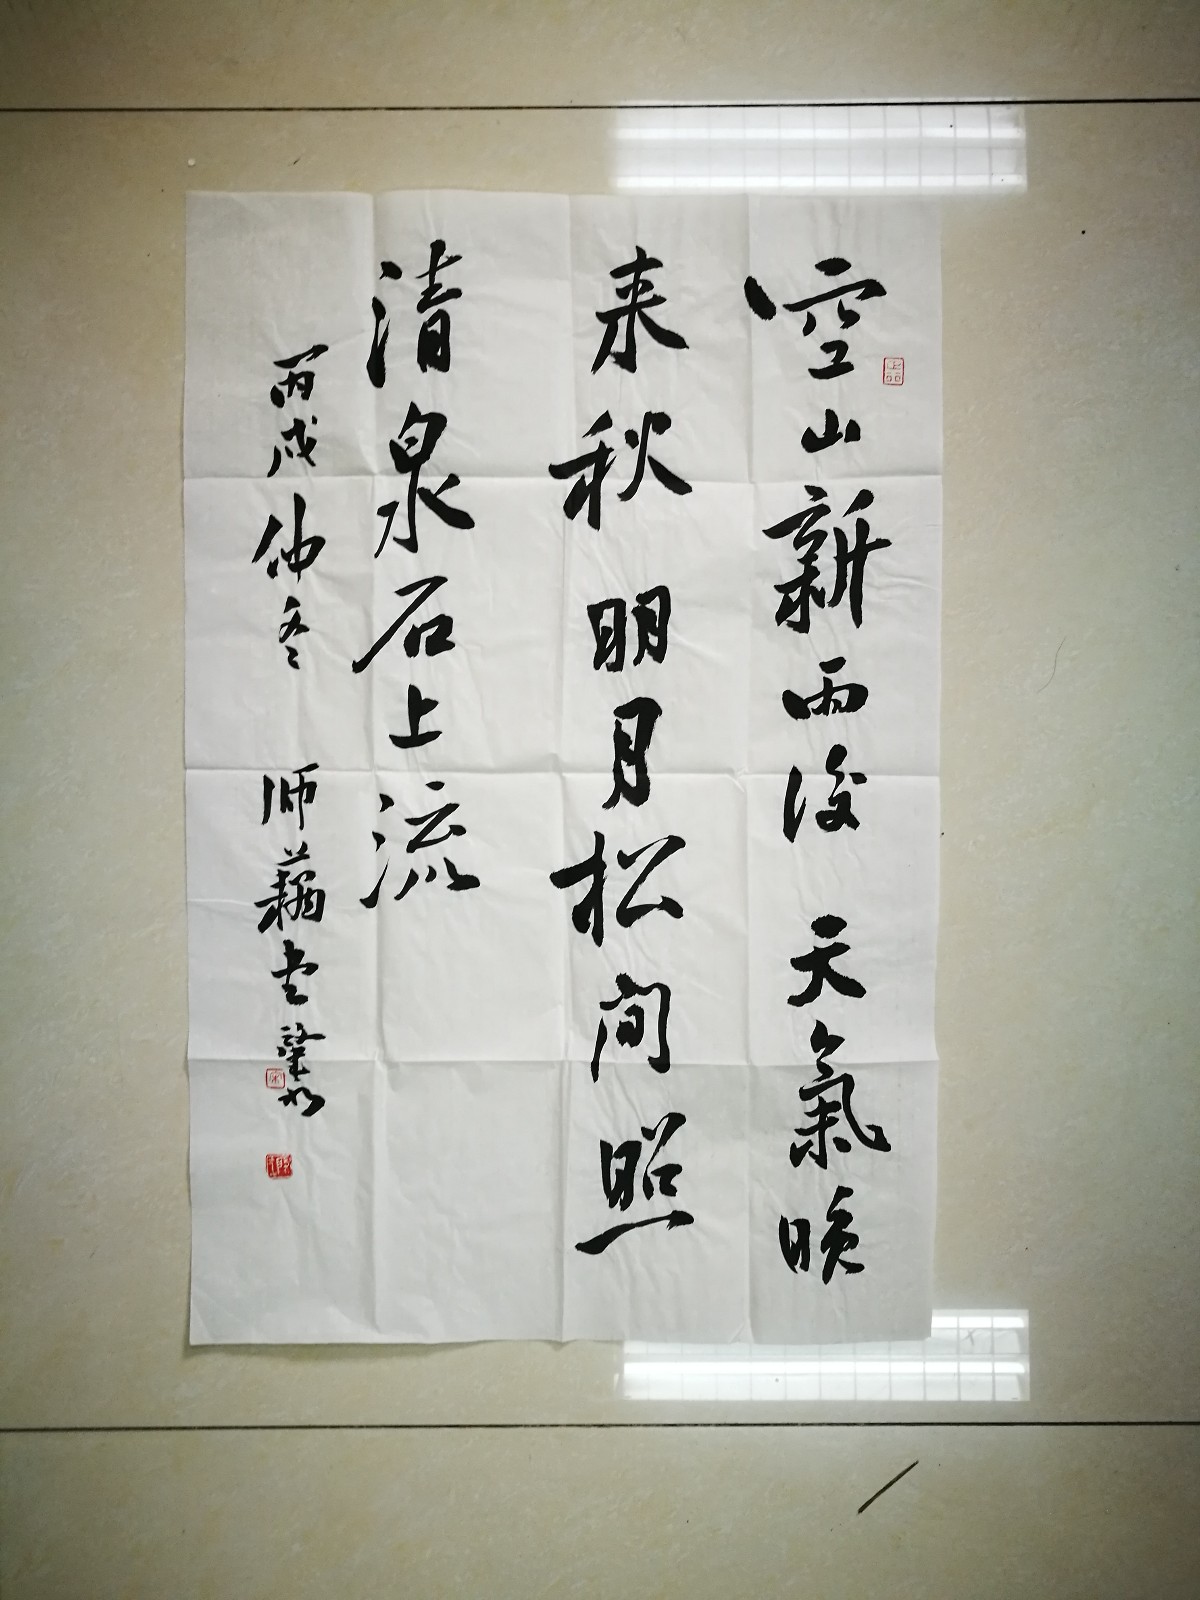 空山新雨後天氣晚
来秋明月松间照
清泉石上流
丙戌仲冬 师藕堂